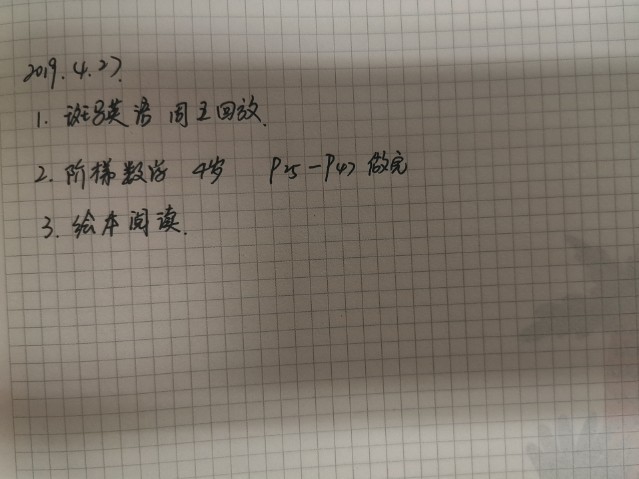 2019.4.27.
1. 斑马英语 周五回放.
2. 阶梯数学 4岁 P25-P47 做完
3. 绘本阅读.